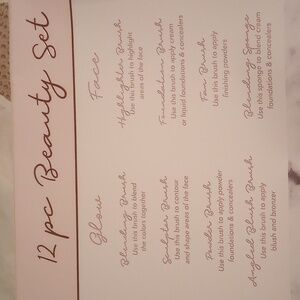 12 pc Beauty Set
Glow
Blending Brush
Use this brush to blend
the colors together
Sculpter Brush
Use this brush to contour
and shape areas of the face
Powder Brush
Use this brush to apply powder
foundations & concealers
Angled Blush Brush
Use this brush to apply
blush and bronzer
Face
Highlighter Brush
Use this brush to highlight
areas of the face
Foundation Brush
Use this brush to apply cream
or liquid foundations & concealers
Fan Brush
Use this brush to apply
finishing powders
Blending Sponge
Use this sponge to blend cream
foundations & concealers